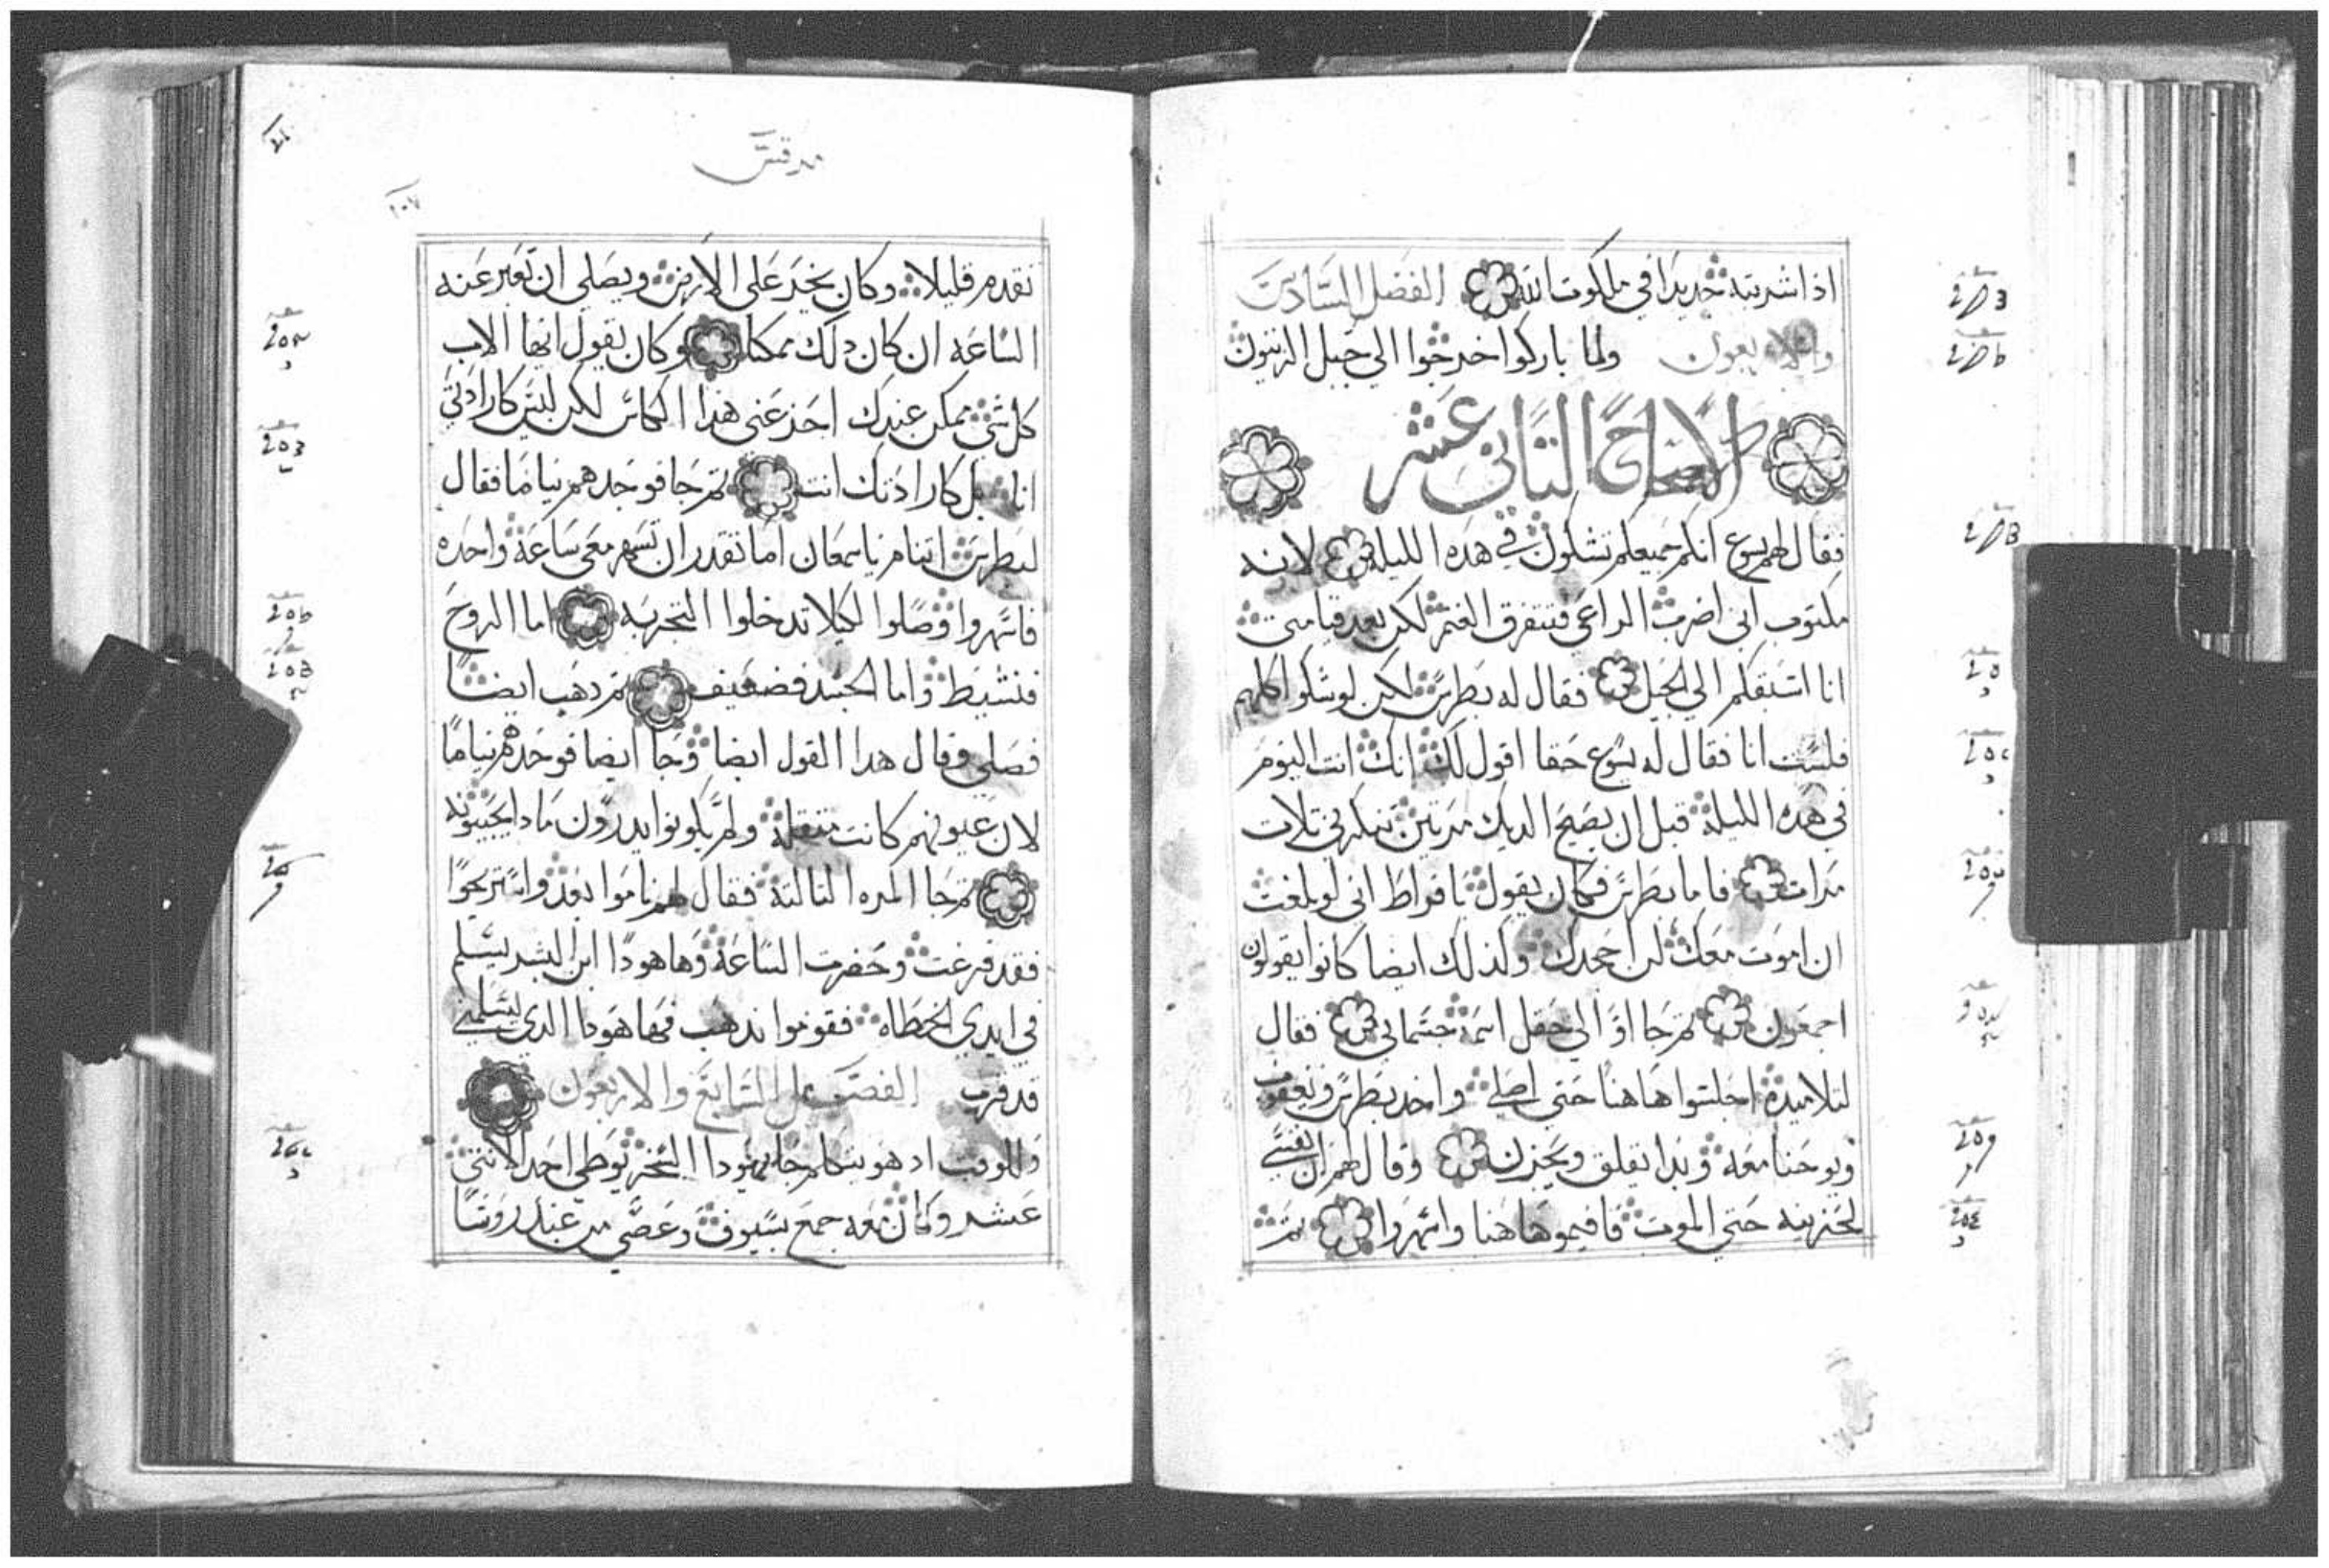 اذا شربته جديدا في ملكوت الله الفصل السادس
والاربعون ولما باركوا خرجوا الي جبل الزيتون
الاصحاح الثاني عشر
فقال لهم يسوع انكم جميعكم تشكون في هذه الليلة لانه
مكتوب اني اضرب الراعي فتتفرق الغنم لكن بعد قيامتي
انا اسبقكم الي الجبل فقال له بطرس لكن لو شكوا كلهم
فلست انا فقال له يسوع حقا اقول لك انك انت اليوم
في هذه الليلة قبل ان يصيح الديك مرتين تنكرني تلات
مرات فاما بطرس فكان يقول بافراط اني لو بلغت
ان اموت معك لن اجحدك ولذلك ايضا كانوا يقولون
اجمعون تم جااوا الي حقل اسمه جتسماني فقال
لتلاميذه اجلسوا هاهنا حتي اصلي واخد بطرس ويعقوب
ويوحنا معه وبدا يقلق ويحزن وقال لهم ان نفسي
لحزينه حتي الموت فاقيموا هاهنا واسهروا تم
مرقس
١٠٧
تقدم قليلا وكان يخر علي الارض ويصلي ان تعبر عنه
الساعه ان كان دلك ممكنا وكان يقول ايها الاب
كل شي ممكن عندك اجز عني هذا الكاس لكن ليس كارادتي
انا بل كارادتك انت تم جا فوجدهم نياما فقال
لبطرس اتنام يا سمعان اما تقدر ان تسهر معي ساعة واحده
فاسهروا وصلوا لكيلا تدخلوا التجربه اما الروح
فنشيط واما الجسد فضعيف تم دهب ايضا
فصلي وقال هدا القول ايضا وجا ايضا فوجدهم نياما
لان عيونهم كانت متقلة ولم يكونوا يدرون مادا يجيبونه
تم جا المره التالتة فقال لهم ناموا بعد واستريحوا
فقد فرغت وحضرت الساعة وها هودا ابن البشر يسلم
في ايدي الخطاه فقوموا ندهب فها هودا الدي يسلمني
قد قرب الفصل السابع والاربعون
وللوقت اد هو يتكلم جا يهودا السخريوطي احد الاتني
عشر وكان معه جمع بسيوف وعصي من عند روسا